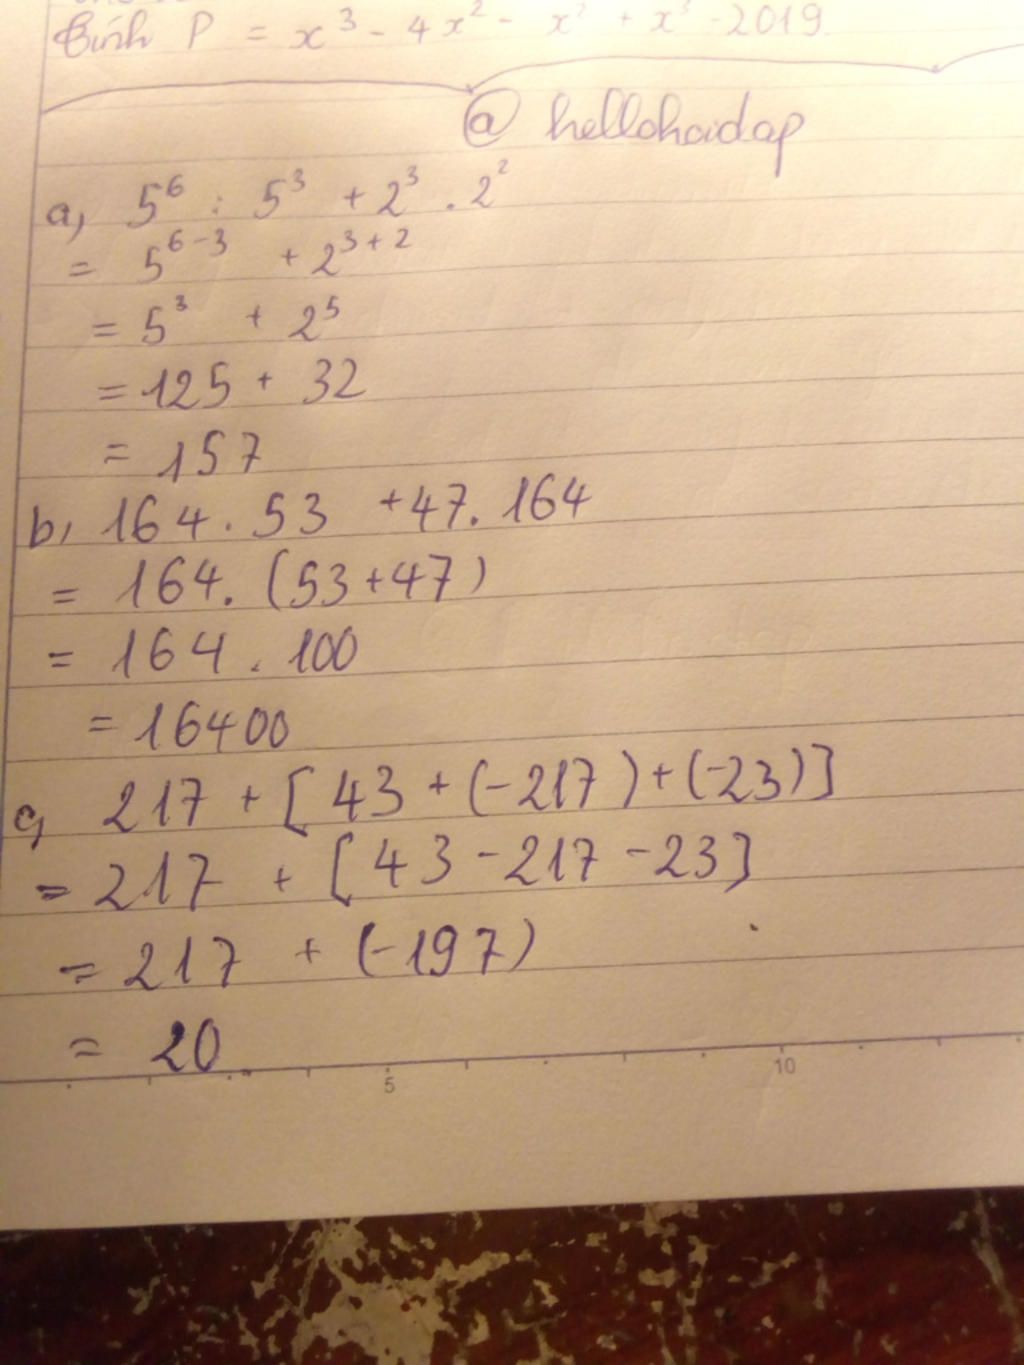 Tính P = x³ - 4x² - x² + x³ - 2019.
@ hellohoidap
a, 5⁶ : 5³ + 2³ . 2²
= 5⁶⁻³ + 2³⁺²
= 5³ + 2⁵
= 125 + 32
= 157
b, 164 . 53 + 47 . 164
= 164 . (53 + 47)
= 164 . 100
= 16400
c, 217 + [43 + (-217) + (-23)]
= 217 + [43 - 217 - 23]
= 217 + (-197)
= 20
5 10